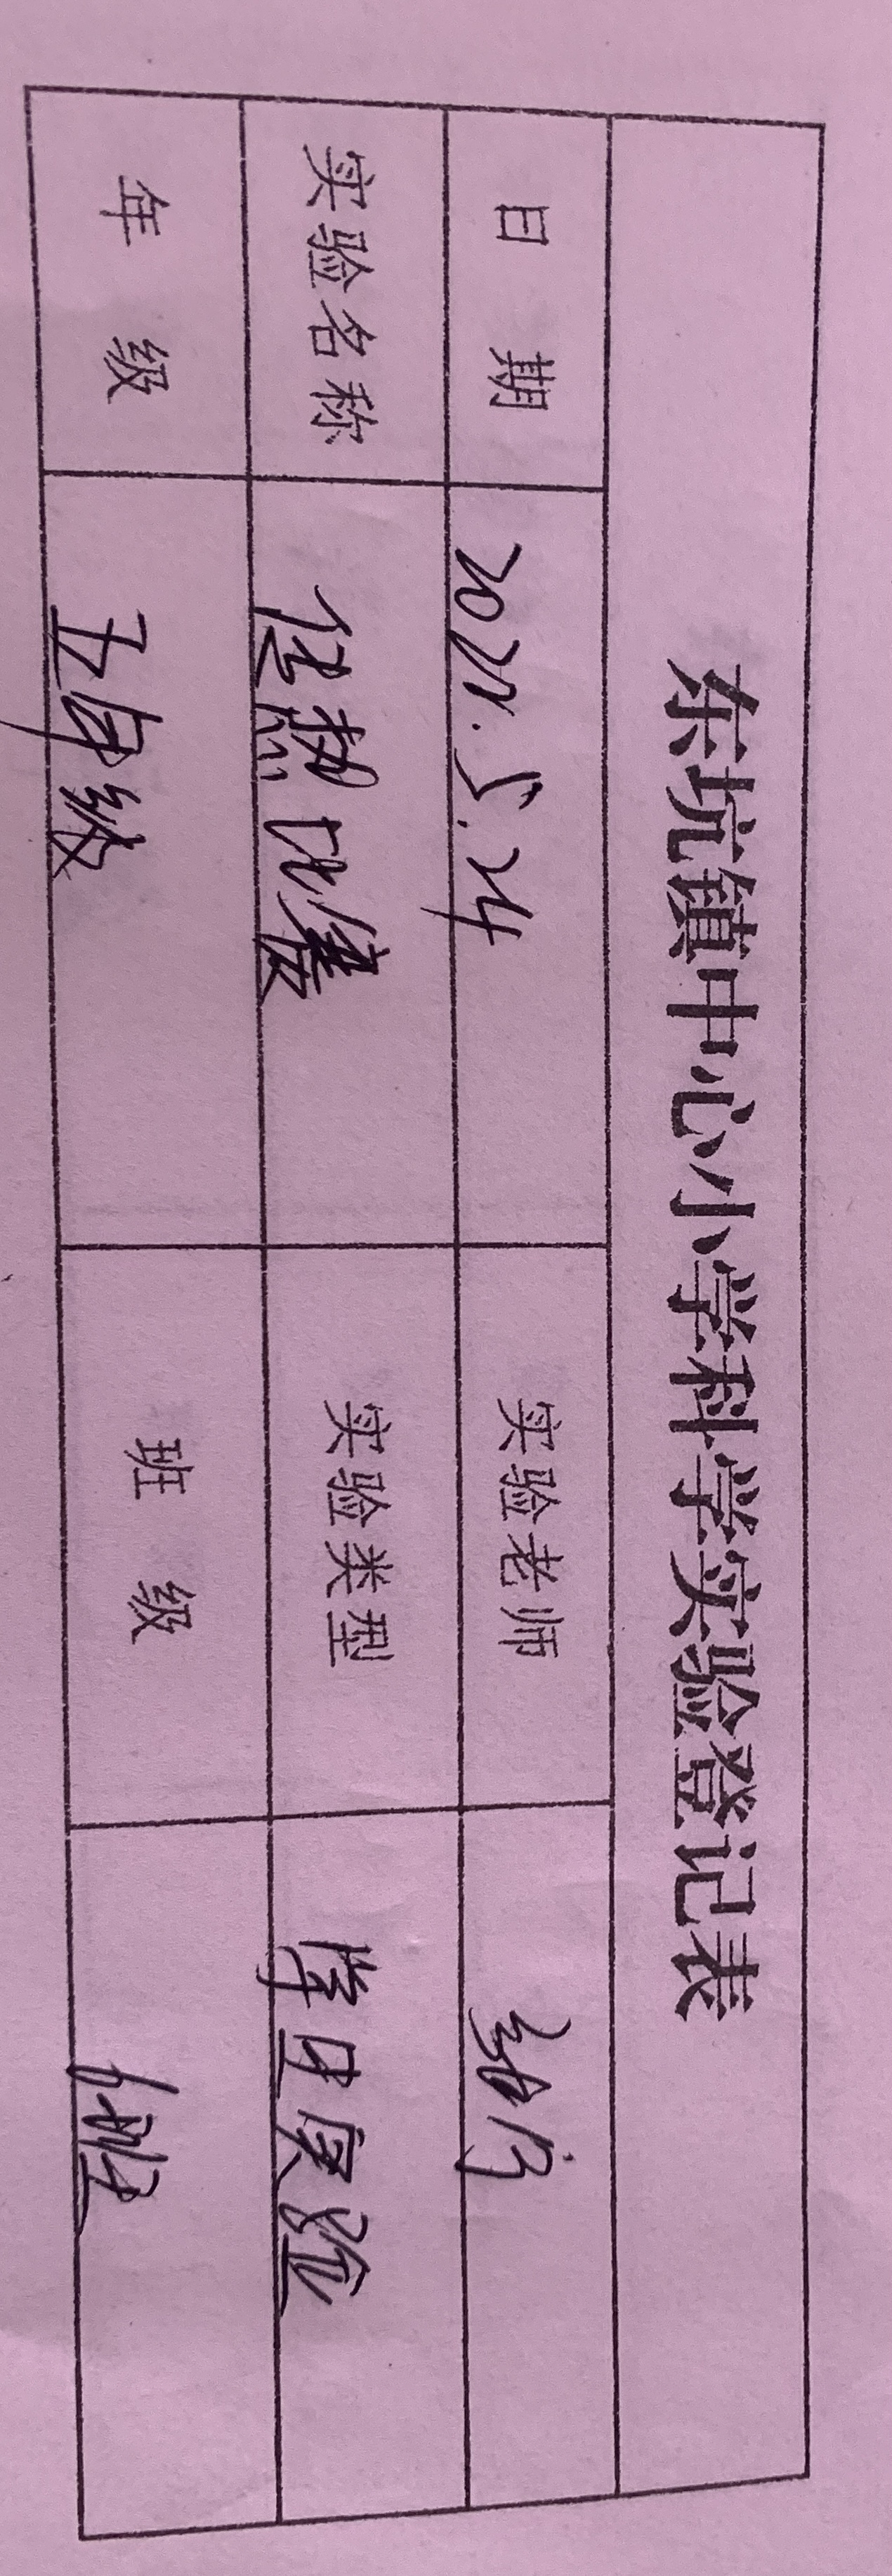 东坑镇中心小学科学实验登记表
日 期 实验老师
实验名称 传热比赛 实验类型 学生实验
年 级 五年级 班 级 1班